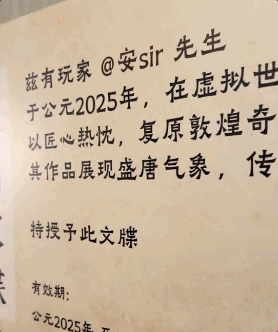 兹有玩家 @安sir 先生
于公元2025年，在虚拟世
以匠心热忱，复原敦煌奇
其作品展现盛唐气象，传
特授予此文牒
有效期：
公元2025年
牒